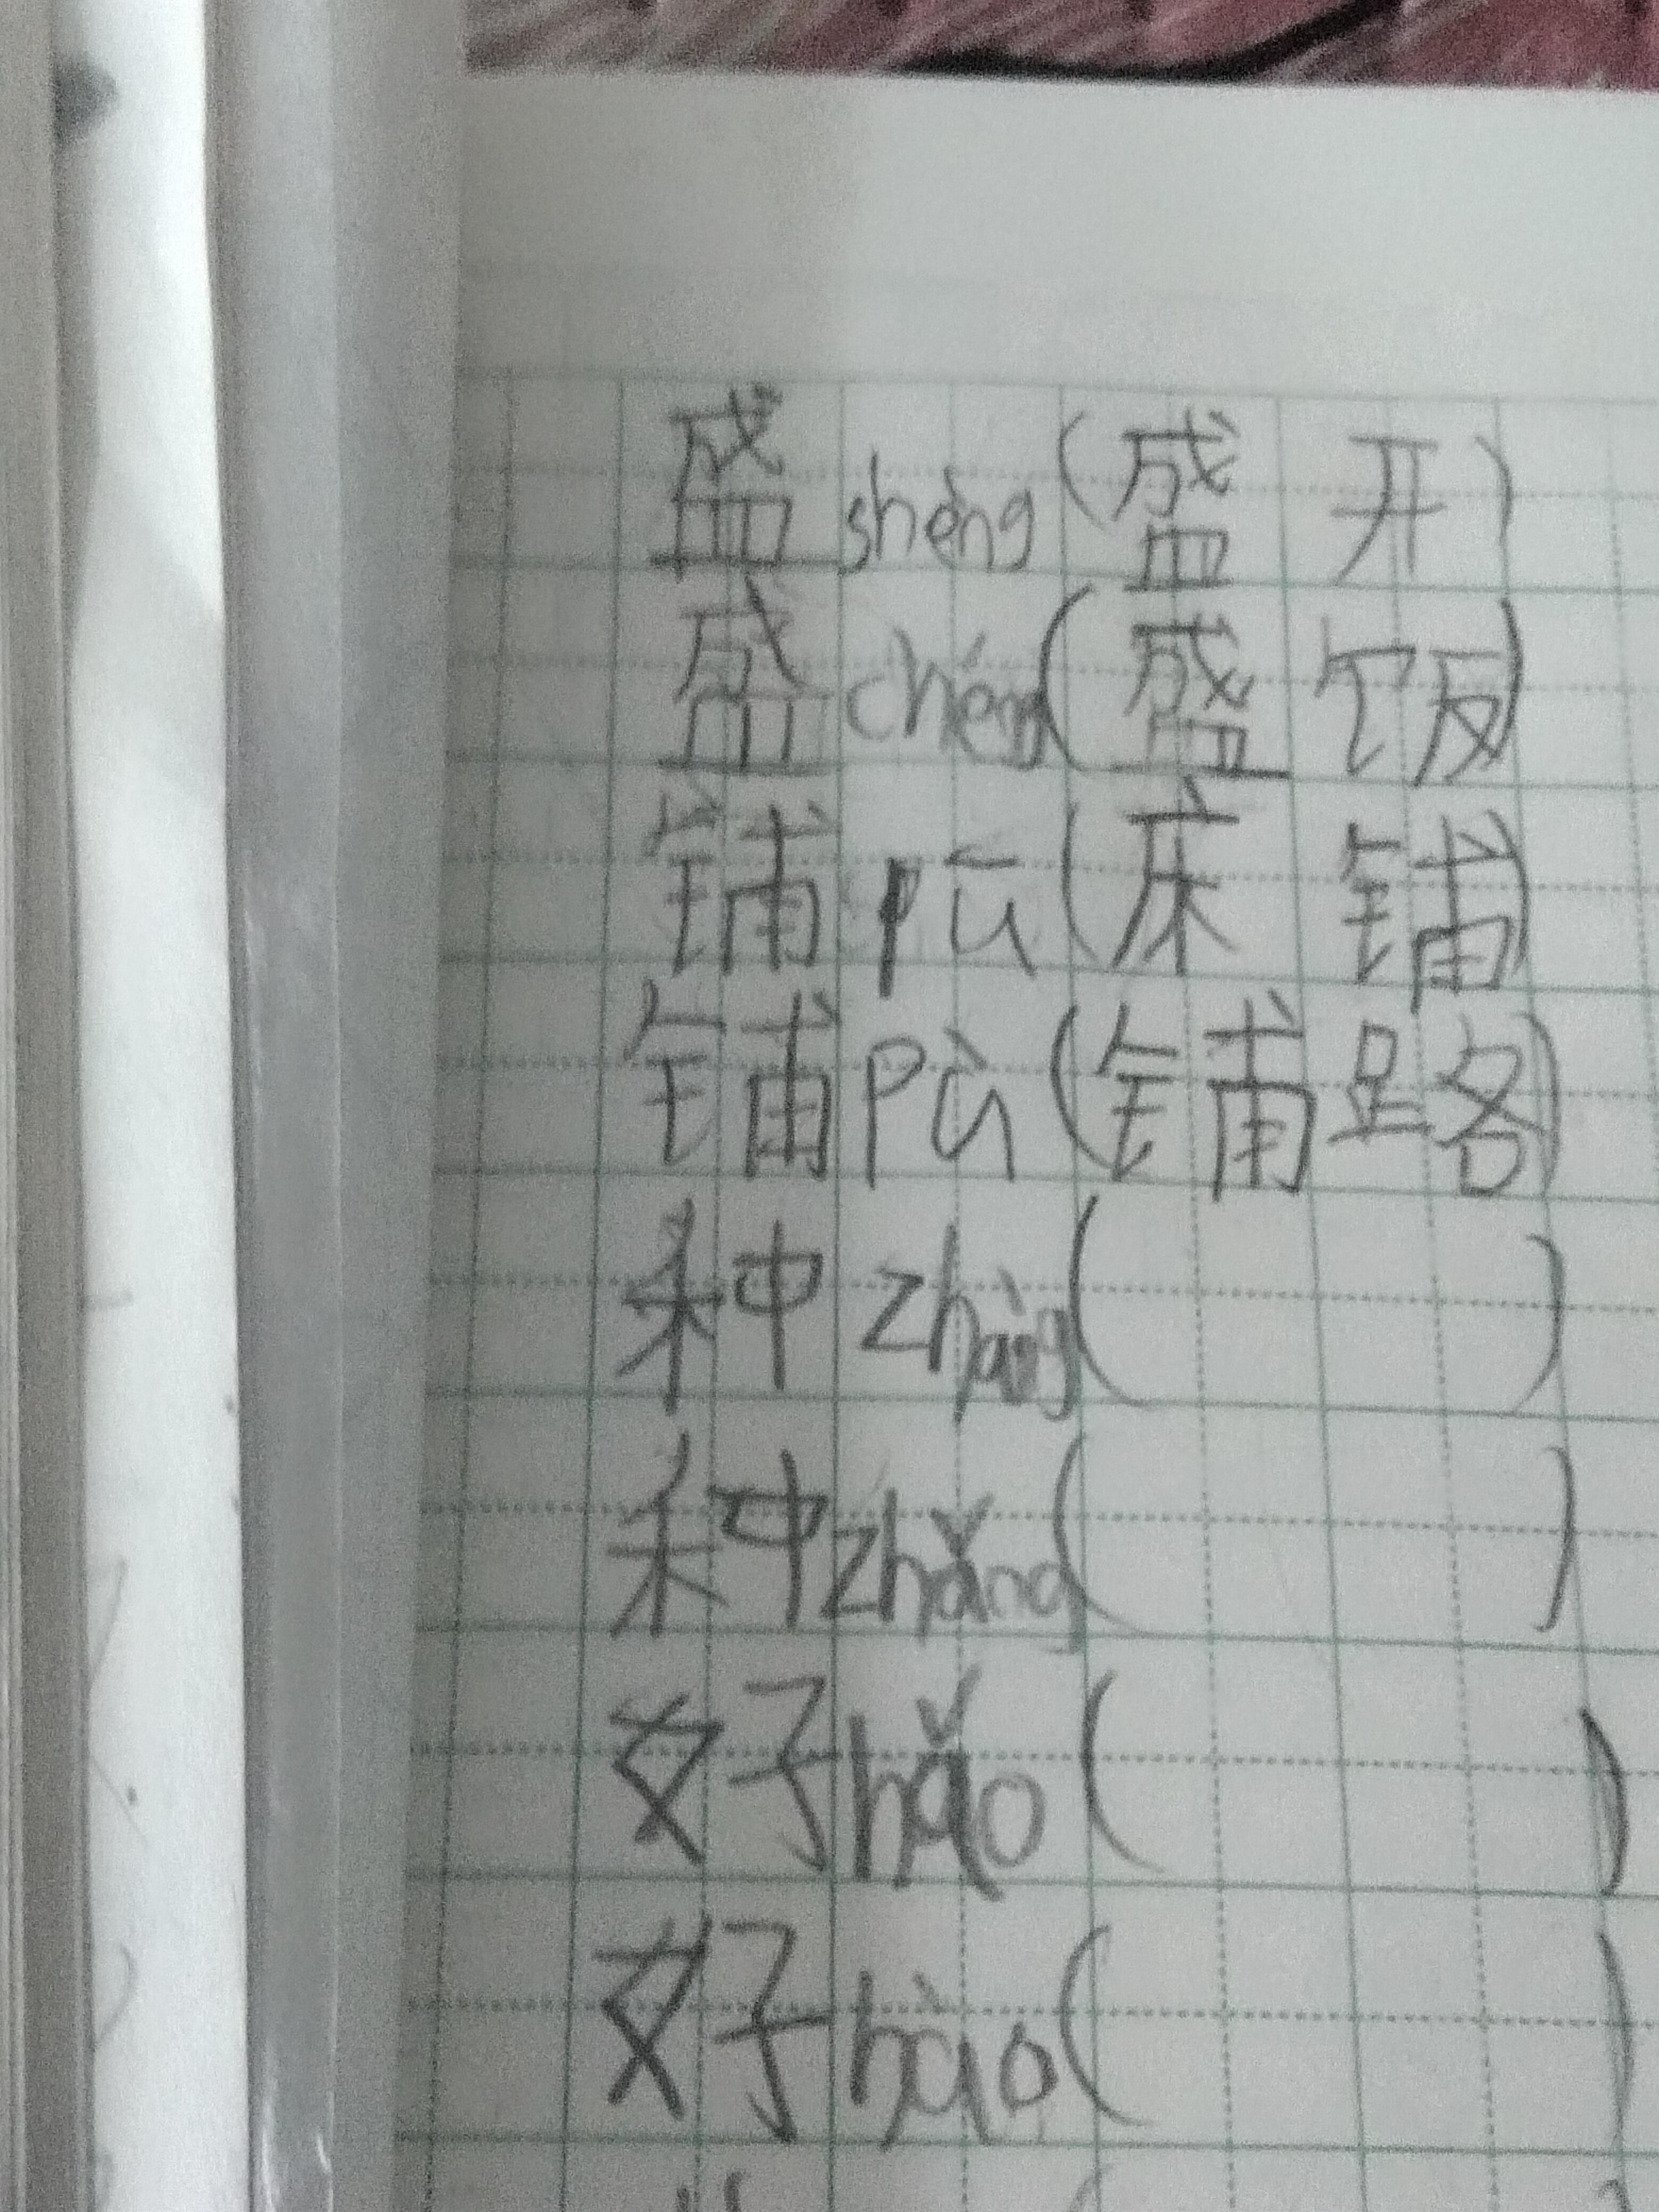 盛 shèng (盛 开)
盛 chéng (盛 饭)
铺 pū (床 铺)
铺 pù (铺 路)
种 zhàng (        )
种 zhǎng (        )
好 hǎo (        )
好 hào (        )